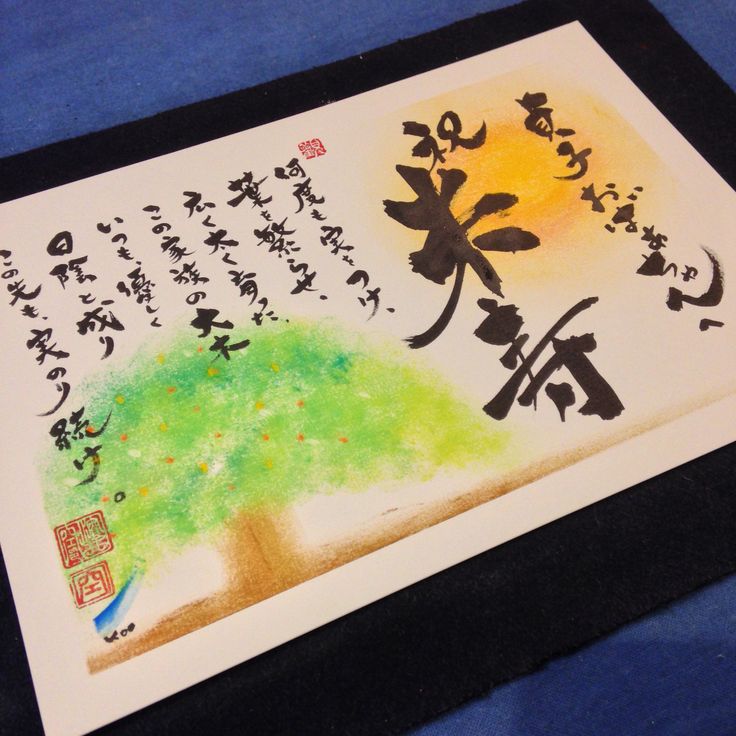 貞子おばあちゃんへ
祝
米寿
何度も実をつけ、
葉を繁らせ、
広く太く育った、
この家族の大木
いつも、優しく
日陰と成り
この先も、実のり続け。
空